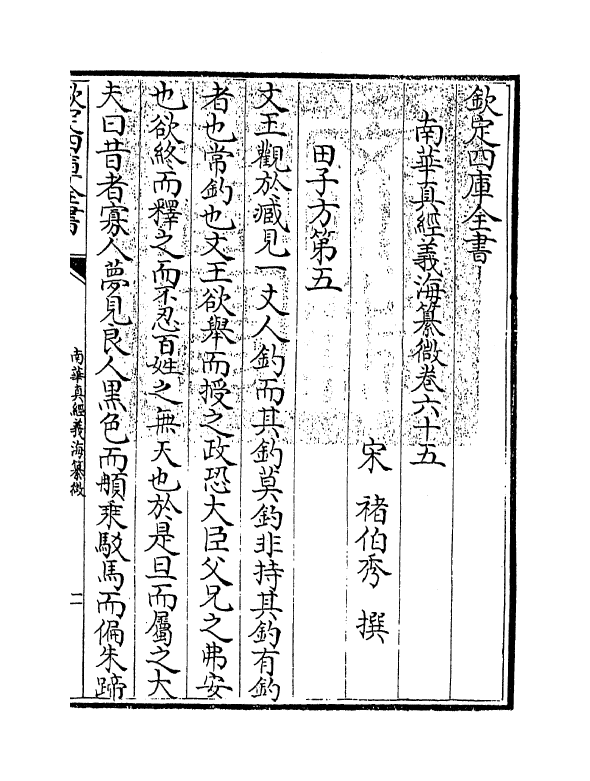 欽定四庫全書
南華真經義海纂微卷六十五
宋 褚伯秀 撰
田子方第五
文王觀於臧見一丈人釣而其釣莫釣非持其釣有釣
者也常釣也文王欲舉而授之政恐大臣父兄之弗安
也欲終而釋之而不忍百姓之無天也於是旦而屬之大
夫曰昔者寡人夢見良人黑色而䫇乘駁馬而偏朱蹄
欽定四庫全書
南華真經義海纂微